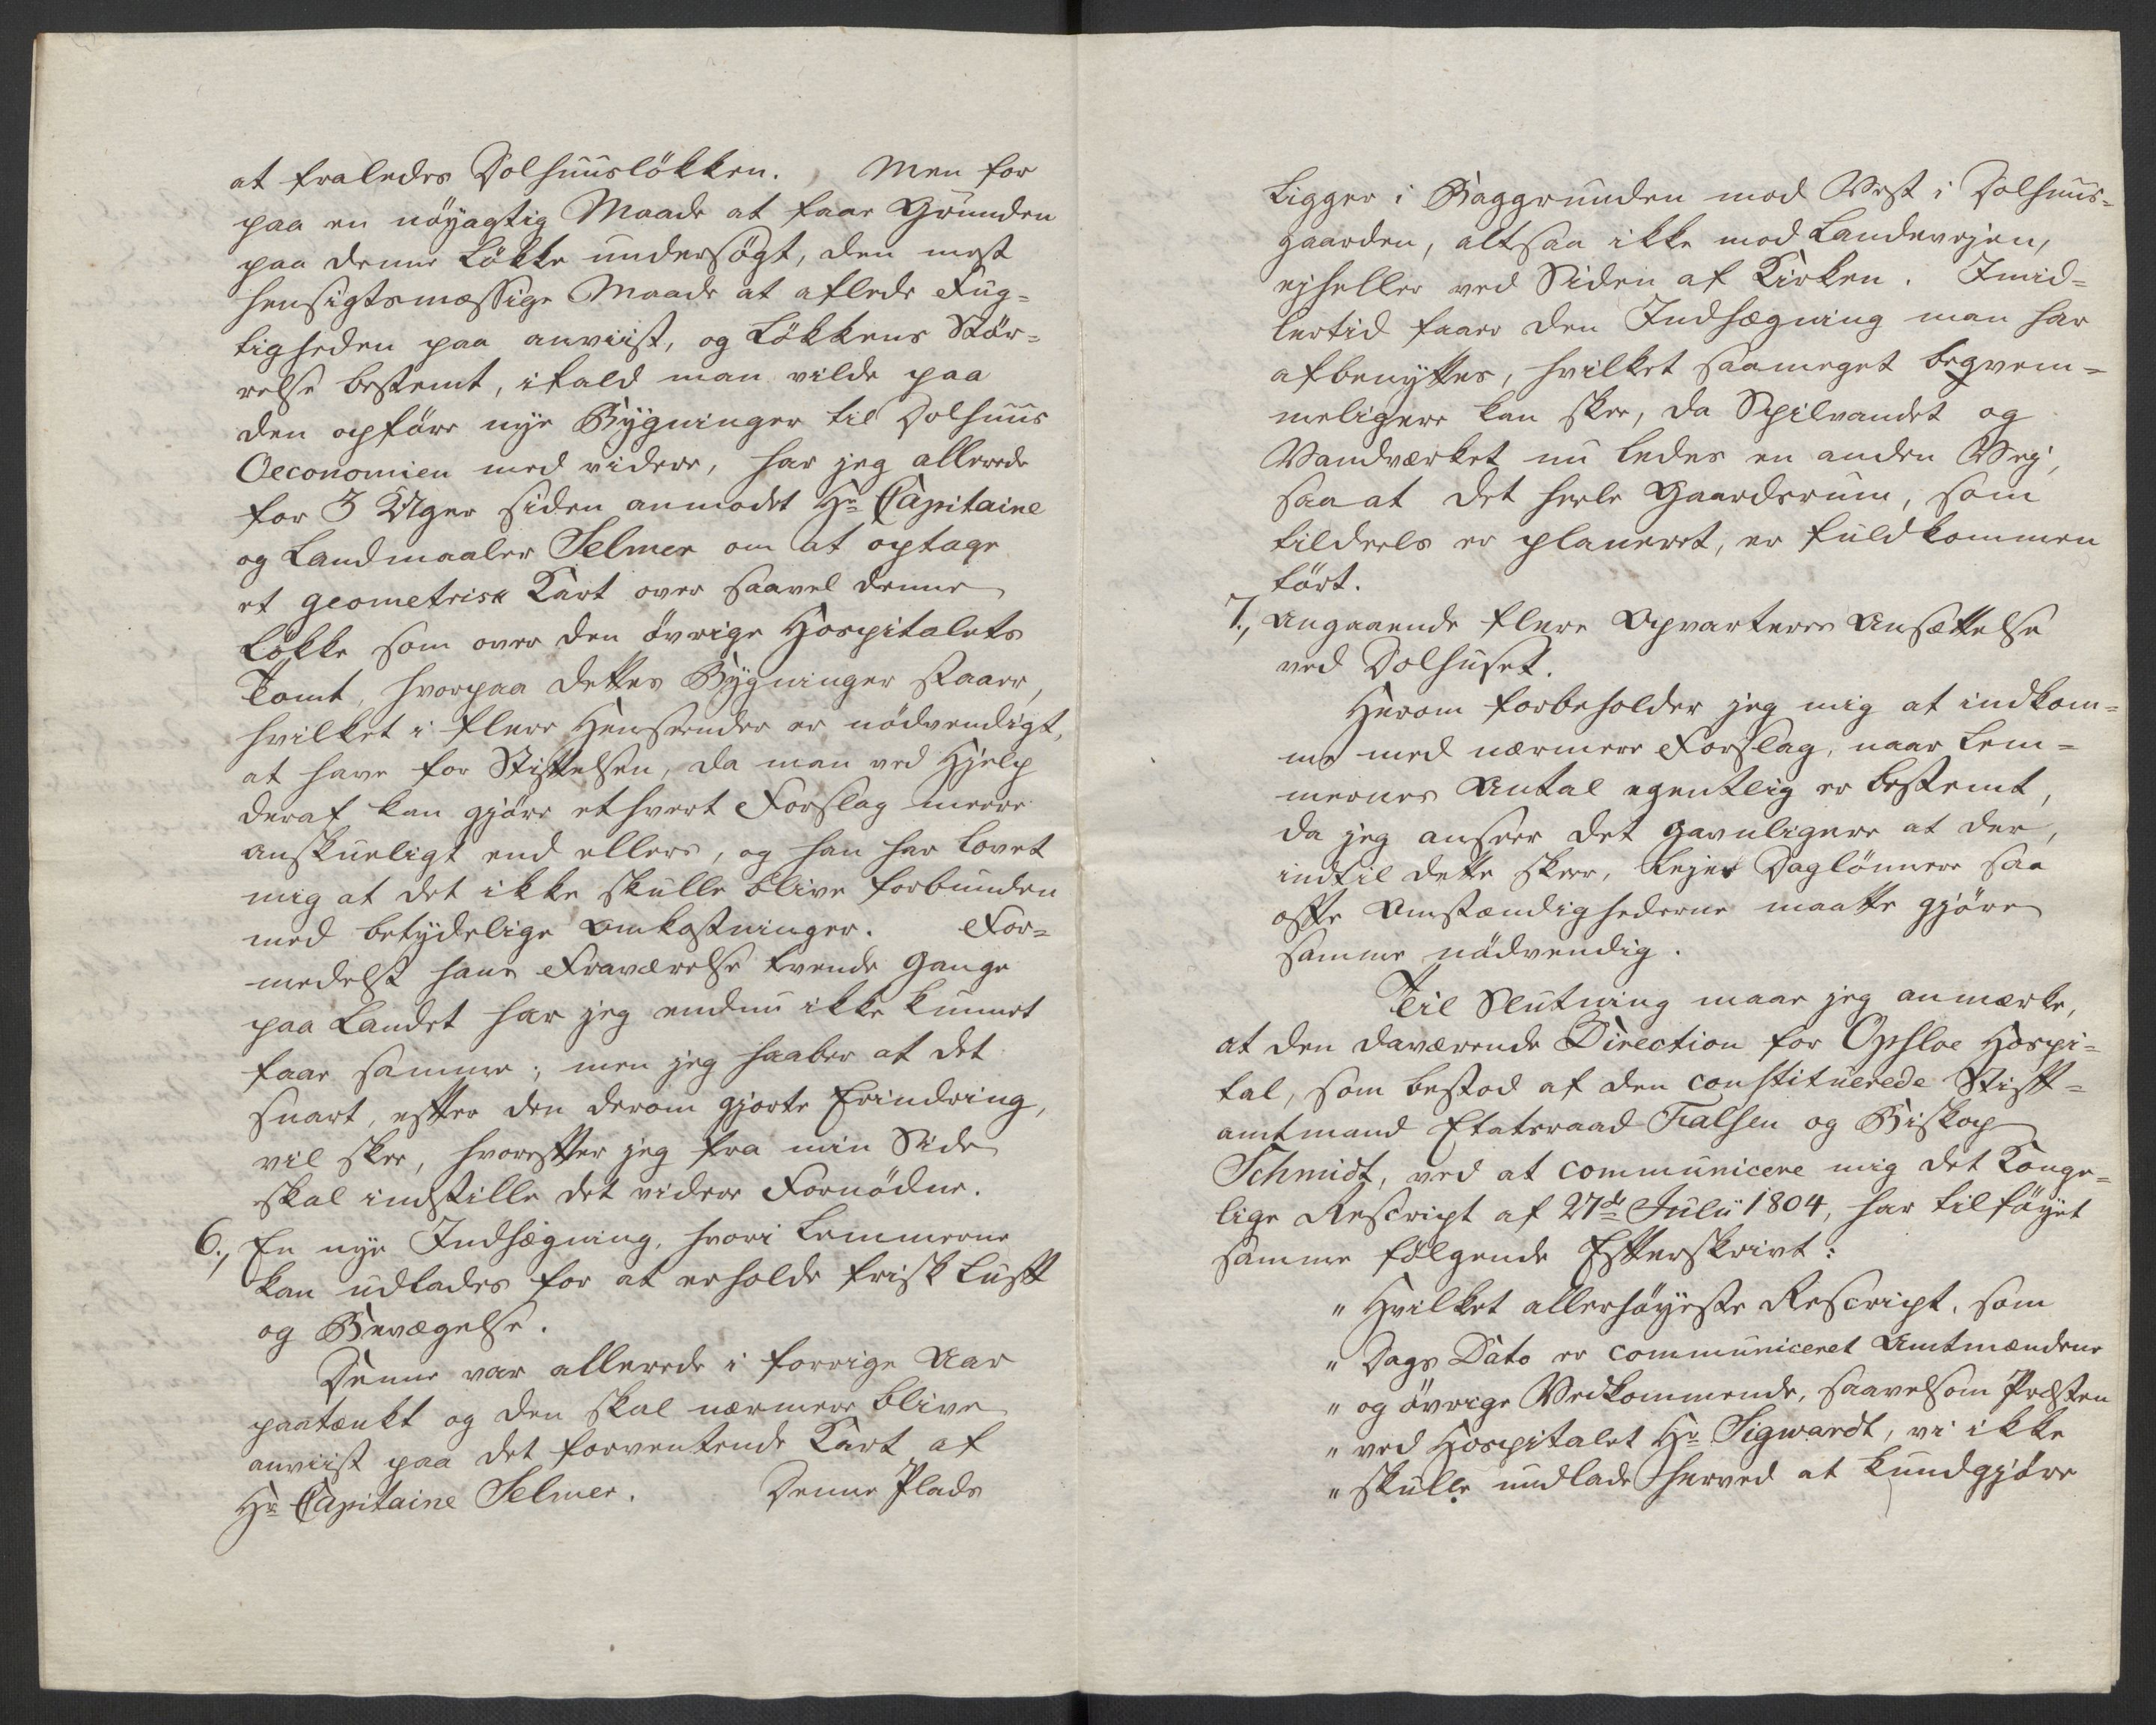 at fraledes Dolhuusløkken. Men for
paa en nøyagtig Maade at faae Grunden
paa denne Løkke undersøgt, den mest
hensigtsmæssige Maade at aflede Fug-
tigheden paa anviist, og Løkkens Stør-
relse bestemt, ifald man vilde paa
den opføre nye Bygninger til Dolhuus
Oeconomien med videre, har jeg allerede
for 3 Uger siden anmodet Hr Capitaine
og Landmaaler Selmer om at optage
et geometrisk Kart over saavel denne
Løkke som over den øvrige Hospitalets
Tomt, hvorpaa dettes Bygninger staaer,
hvilket i flere Henseender er nødvendigt,
at have for Stiftelsen, da man ved Hjelp
deraf kan gjøre ethvert Forslag meere
anskueligt end ellers, og han har lovet
mig at det ikke skulle blive forbunden
med betydelige Omkostninger. For-
medelst hans Fraværelse tvende Gange
paa Landet har jeg endnu ikke kunnet
faae samme; men jeg haaber at det
snart, efter den derom gjorte Erindring,
vil skee, hvorefter jeg fra min Side
skal indstille det videre Fornødne.
6., En nye Indhægning, hvori Lemmerne
kan udlades for at erholde frisk Luft
og Bevægelse.
Denne var allerede i forrige Aar
paatænkt og den skal nærmere blive
anviist paa det forventende Kart af
Hr Capitaine Selmer. Denne Plads
ligger i Baggrunden mod Vest i Dolhuus-
gaarden, altsaa ikke mod Landevejen,
ejheller ved Siden af Kirken. Imid-
lertid faaer den Indhægning man har
afbenyttes, hvilket saameget beqvem-
meligere kan skee, da Spilvandet og
Vandværket nu ledes en anden Vej,
saa at det heele Gaardsrum, som
tildeels er planeret, er fuldkommen
tørt.
7., Angaaende flere Opvarteres Ansættelse
ved Dolhuset.
Herom forbeholder jeg mig at indkom-
me med nærmere Forslag, naar Lem-
mernes Antal egentlig er bestemt,
da jeg anseer det gavnligere at der,
indtil dette skeer, lejes Daglønnere saa
ofte Omstændighederne maatte gjøre
samme nødvendig.
Til Slutning maae jeg anmærke,
at den daværende Direction for Opsloe Hospi-
tal, som bestod af den constituerede Stift-
amtmand Etatsraad Falsen og Biskop
Schmidt, ved at communicere mig det Konge-
lige Rescript af 27de Julii 1804, har tilføyet
samme følgende Efterskrivt:
" Hvilket allerhøyeste Rescript, som
" Dags Dato er communiceret Amtmændene
" og øvrige Vedkommende, saavelsom Præsten
" ved Hospitalet Hr Sigwardt, vi ikke
" skulle undlade herved at kundgjøre